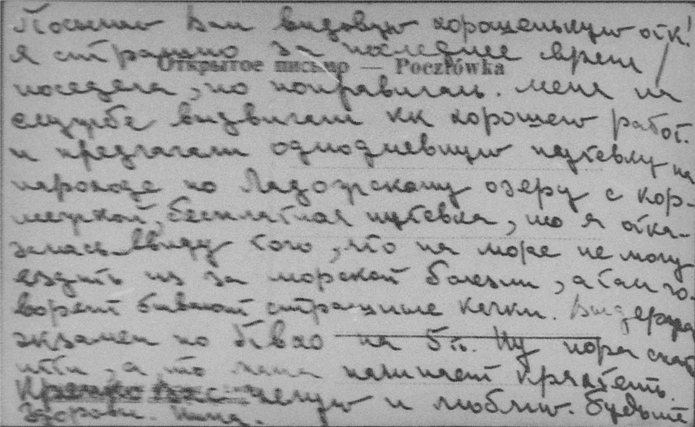 Посылаю Вам видовую хорошенькую отк!
я страшно за последнее время
Открытое письмо — Pocztówka
поседела, но поправилась. Меня на
службе выдвигали кк хорошего работ.
и предлагали однодневную путевку на
пароходе по Ладожскому озеру с кор-
межкой, бесплатная путевка, но я отка-
залась ввиду того, что на море не могу
ездить из за морской болезни, а там го
ворят бывают страшные качки. Выдержала
экзамен по на 5п. Ну пора спать
итти, а то мама начинает кряхтеть.
Крепко вас целую и люблю. Будьте
здоровы. Нина.